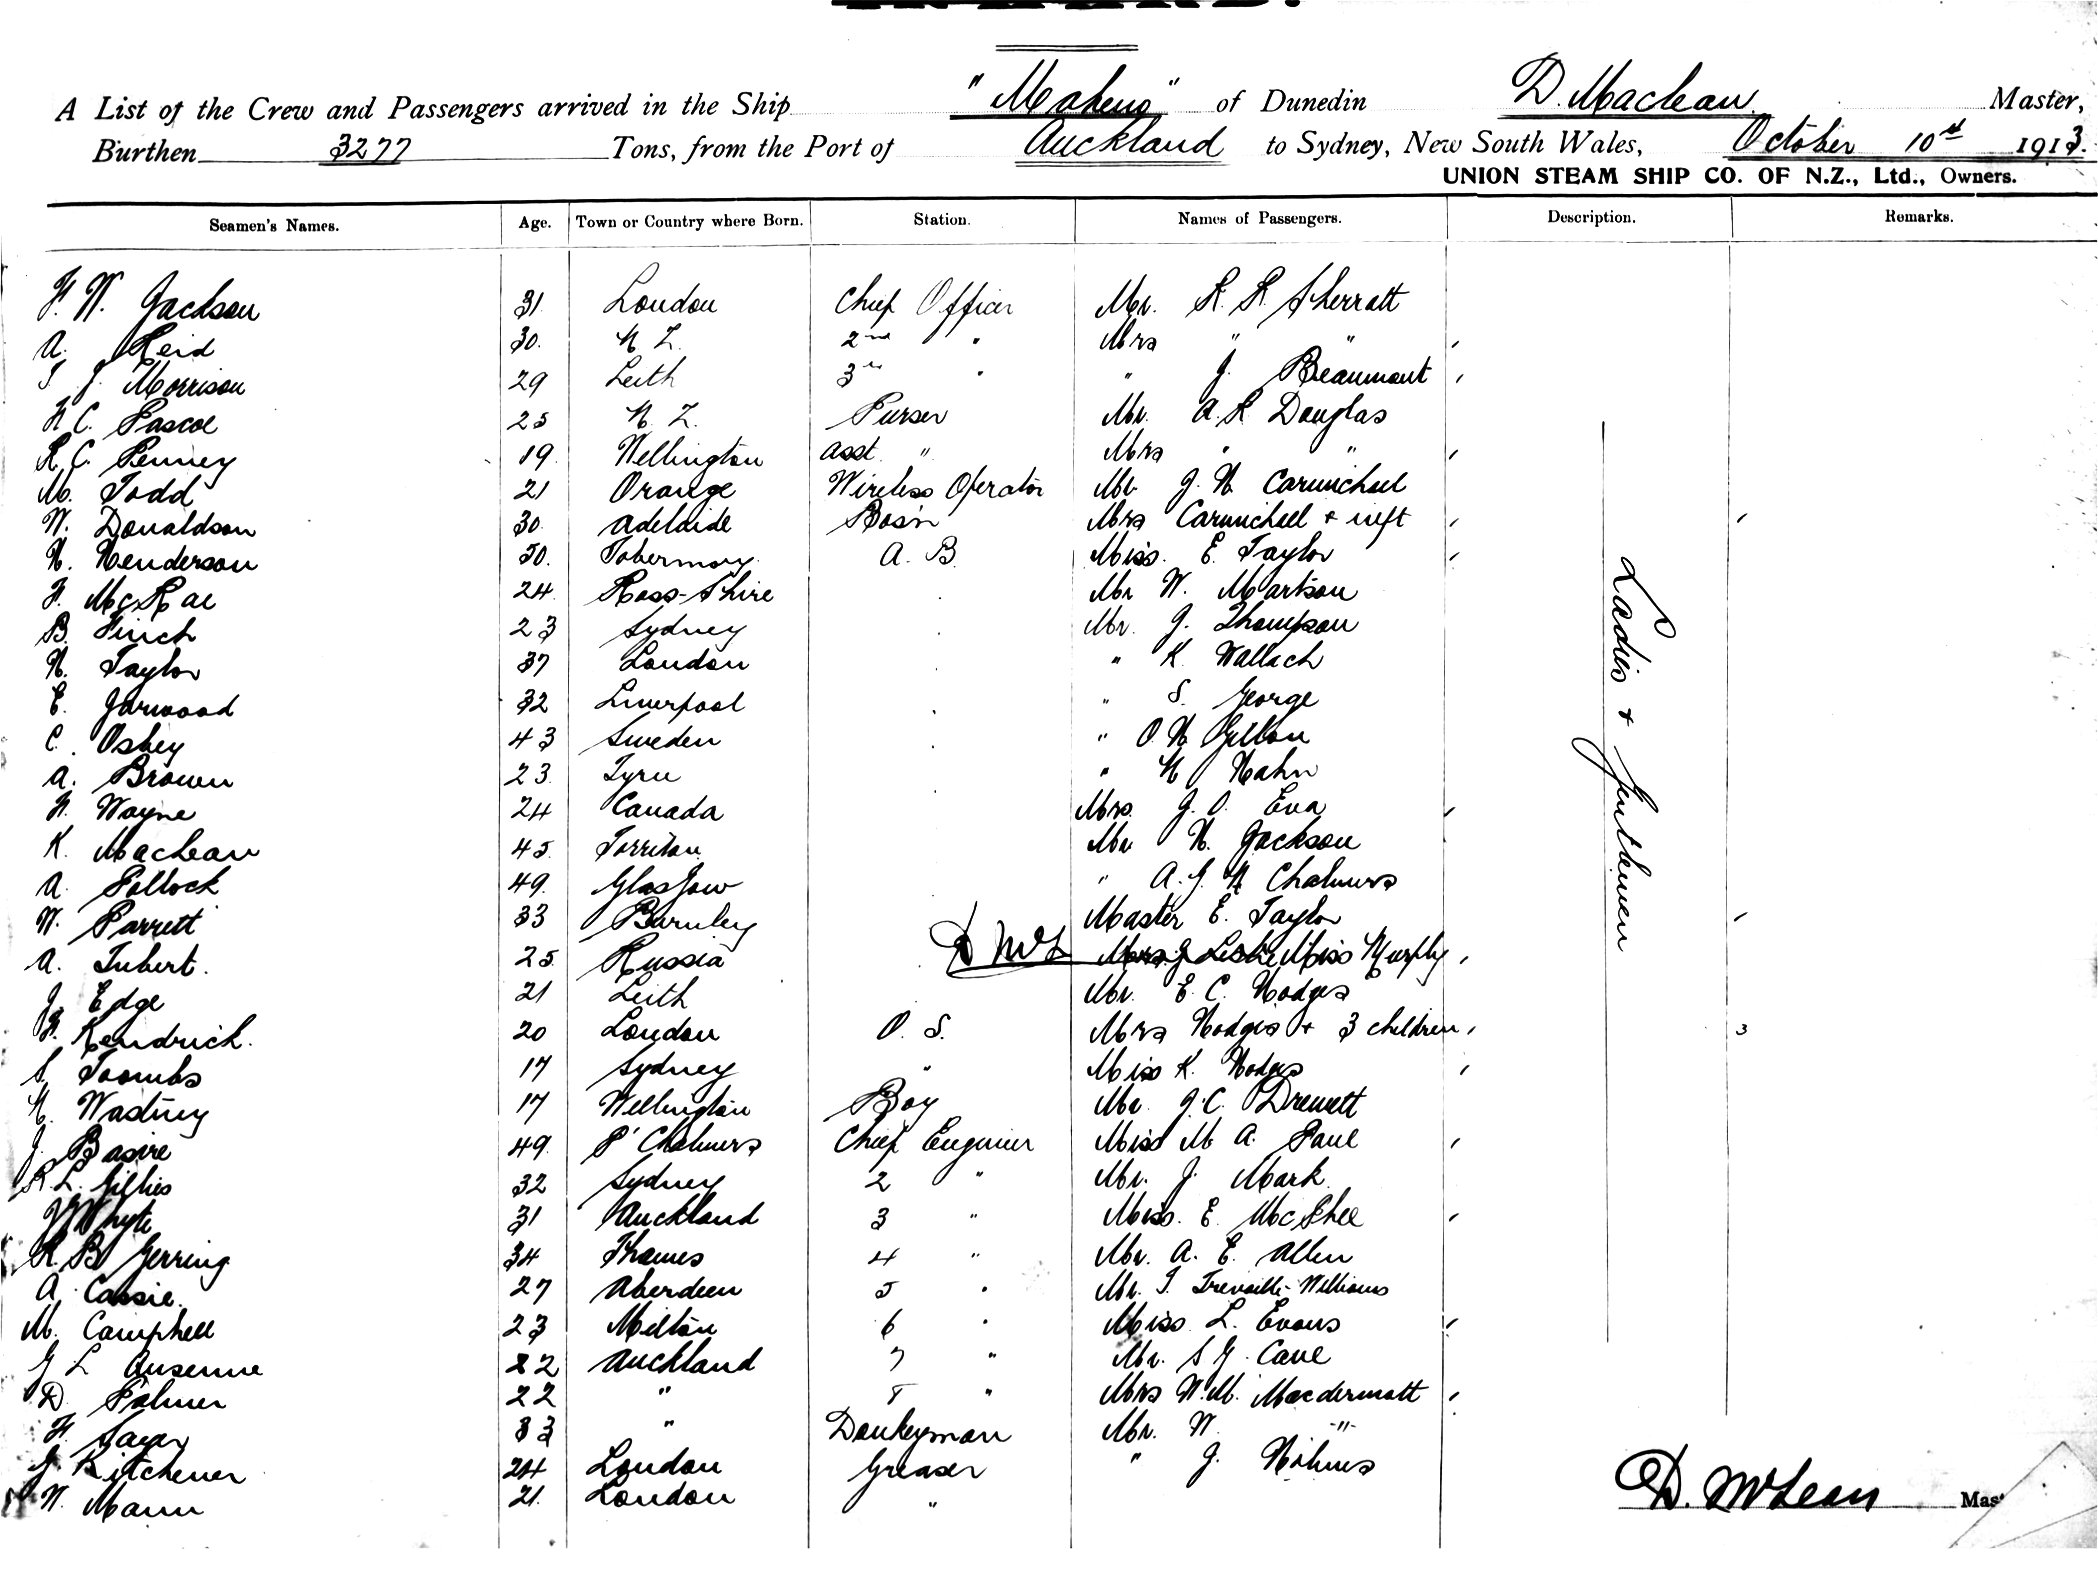 A List of the Crew and Passengers arrived in the Ship "Maheno" of Dunedin D. Maclean Master,
Burthen 3277 Tons, from the Port of Auckland to Sydney, New South Wales, October 10th 1913.
UNION STEAM SHIP CO. OF N.Z., Ltd., Owners.
Seamen's Names. Age. Town or Country where Born. Station. Names of Passengers. Description. Remarks.
F. W. Jackson 31 London Chief Officer Mr. R. R. Sherratt
A. Reid 30. N Z. 2nd " Mrs " "
J. Morrison 29 Leith 3rd " " J. Beaumont
H C. Pascoe 25 N. Z. Purser Mr. A. R Douglas
R. C. Penney 19 Wellington Asst. " Mrs " "
M. Todd 21 Orange Wireless Operator Mr J. H Carmichael
W. Donaldson 30 Adelaide Bosn Mrs Carmichael + inft
H. Henderson 50. Tobermory A. B. Miss. E. Taylor
F. McRae 24 Ross-Shire Mr W. Martson
B. Finch 23 Sydney Mr. J. Thompson
H. Taylor 37 London " K Wallach
E. Garwood 32 Liverpool " S. George
C. Osbey 43 Sweden " O H Gillon
A. Brown 23. " H Hahn
H. Wayne 24 Canada Mrs. J. O. Eva
K. MacLean 45. Mr H. Jackson
A. Pollock 49. Glasgow " A. G. H Chalmers
W. Parrett 33 Burnley Master E. Taylor
A. Tubert. 25 Russia D McL Miss Murphy
J. Edge 21 Leith Mr. E. C. Hodges
Kendrick. 20 London O. S. Mrs Hodges + 3 children 3
S. Toombs 17 Sydney " Miss K. Hodges
H. Wastney 17 Wellington Boy Mr. J. C. Drewett
J. Basire 49. Pt Chalmers Chief Engineer Miss M A. Paul
R. L. Gillies 32 Sydney 2 " Mr. J. Mark
Whyte 31 Auckland 3 " Miss. E. McPhee
R. B Gerring 34 Thames 4 " Mr. A. E. Allen
A. Cassie. 27 Aberdeen 5 " Mr. Williams
M. Campbell 23 Milton 6 " Miss L. Evans
G L Ansenne 22 Auckland 7 " Mr. S G. Cave
D. Palmer 22 " 8 " Mrs W. M. Macdermott
F. 33 " Donkeyman Mr. W. "
G Kitchener 24 London Greaser " J. Holmes
W. Mann 21. London "
Ladies + Gentlemen
D. McLean Mas